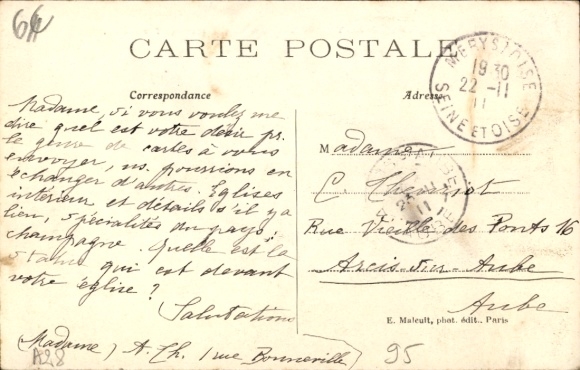 64
CARTE POSTALE
Correspondance
Adresse
MERY S/ OISE
19 30
22 -11
11
SEINE ET OISE
Madame, si vous voulez me
dire quel est votre désir pr.
le genre de cartes à vous
envoyer, ns. pourrions en
échanger d'autres. Eglises
intérieur et détails s'il y a
lieu, spécialités du pays,
champagne. Quelle est la
statue qui est devant
votre église ?
Salutations
Madame, A. Ch. 1 rue Bonneville
Madame
C. Cheriot
Rue Vieille des Ponts 16
Arcis-sur-Aube
Aube
E. Malcuit, phot. édit., Paris
A28
95